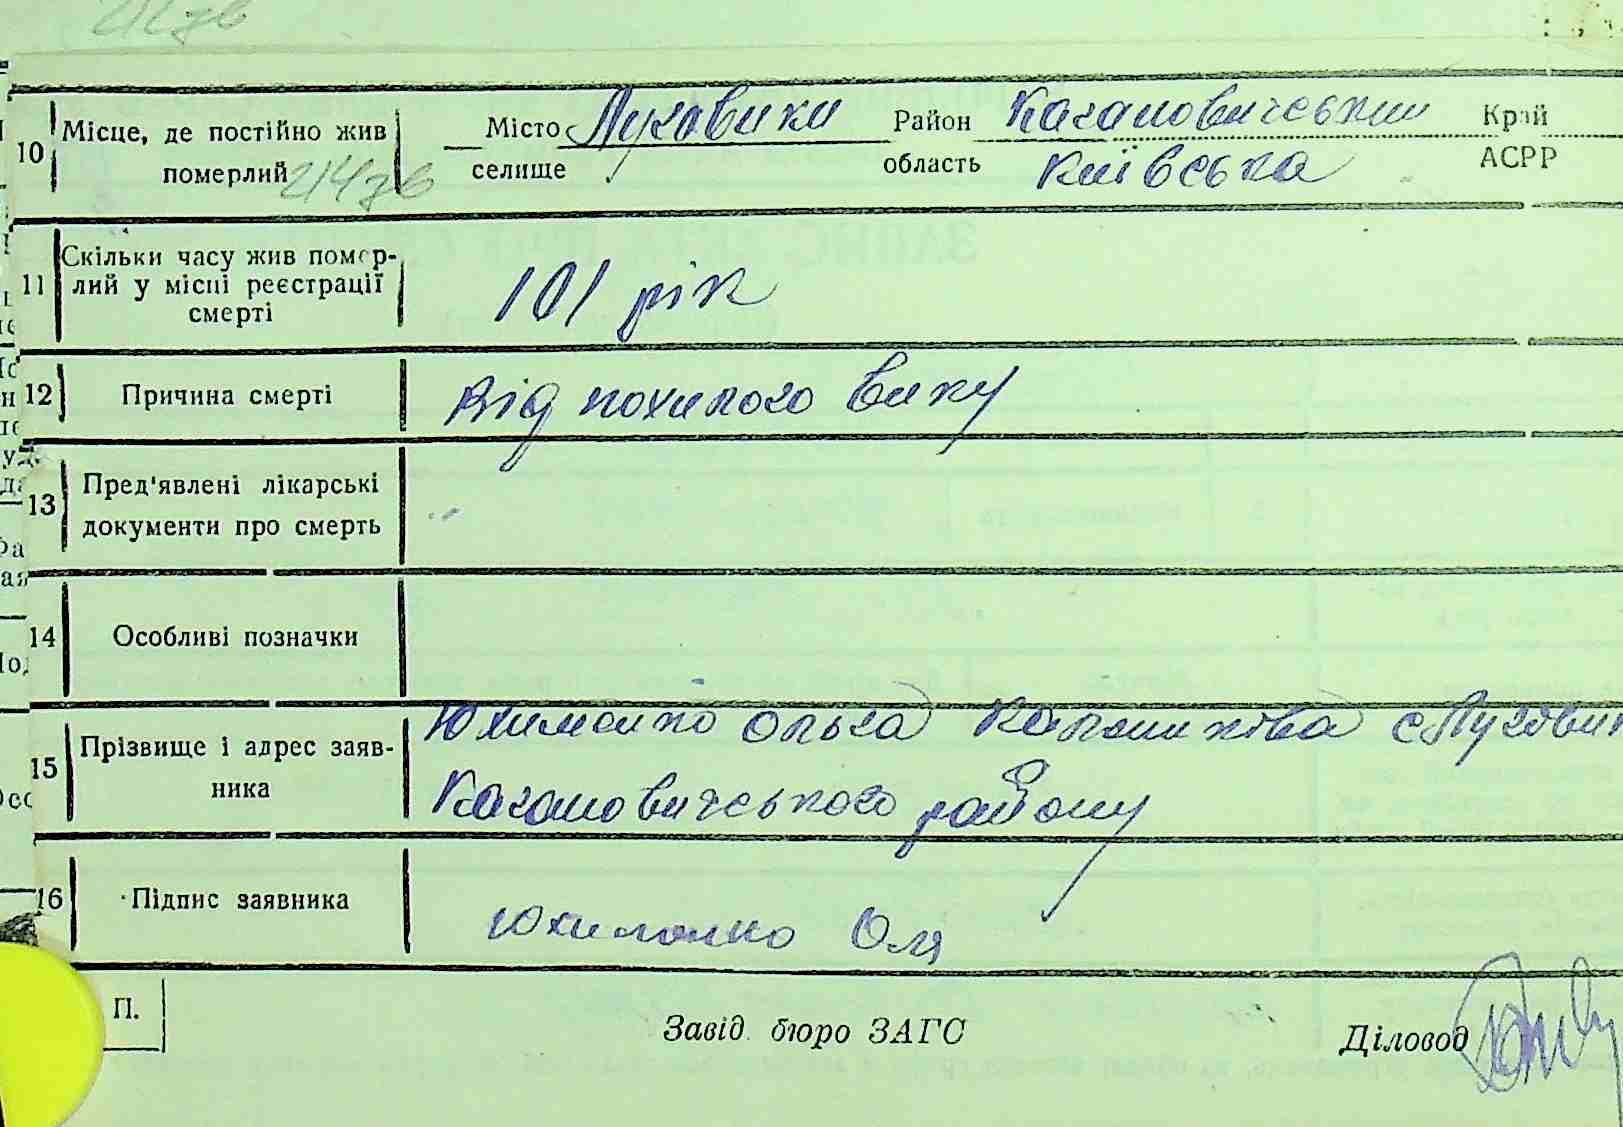 214зв
10 Місце, де постійно жив Місто Луговики Район Кагановичський Край
померлий 214зв селище область Київська АСРР
11 Скільки часу жив помер-
лий у місці реєстрації 101 рік
смерті
12 Причина смерті Від похилого віку
13 Пред'явлені лікарські
документи про смерть
14 Особливі позначки
Юхименко Ольга с Лугови
15 Прізвище і адрес заяв-
ника Кагановичського району
16 Підпис заявника Юхименко Оля
П.
Завід. бюро ЗАГС Діловод